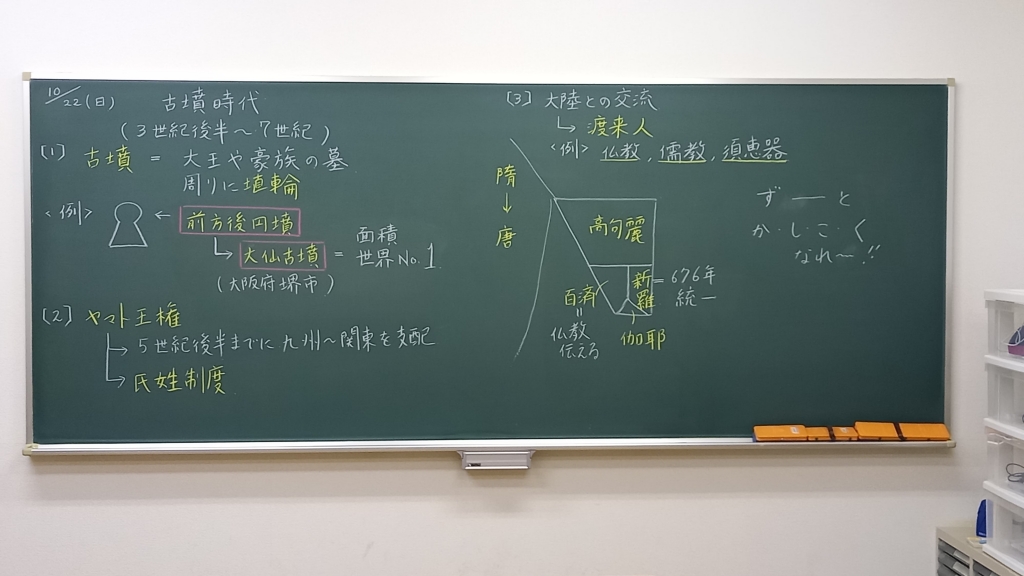 10/22(日) 古墳時代
(3世紀後半～7世紀)
[1] 古墳 = 大王や豪族の墓
周りに埴輪
<例> ← 前方後円墳
大仙古墳 = 面積世界No.1
(大阪府堺市)
[2] ヤマト王権
→ 5世紀後半までに九州～関東を支配
→ 氏姓制度
[3] 大陸との交流
→ 渡来人
<例> 仏教, 儒教, 須恵器
隋
↓
唐
高句麗
新羅 = 676年統一
百済
=
仏教
伝える
伽耶
ずーっと
か・し・こ・く
なれ～!!